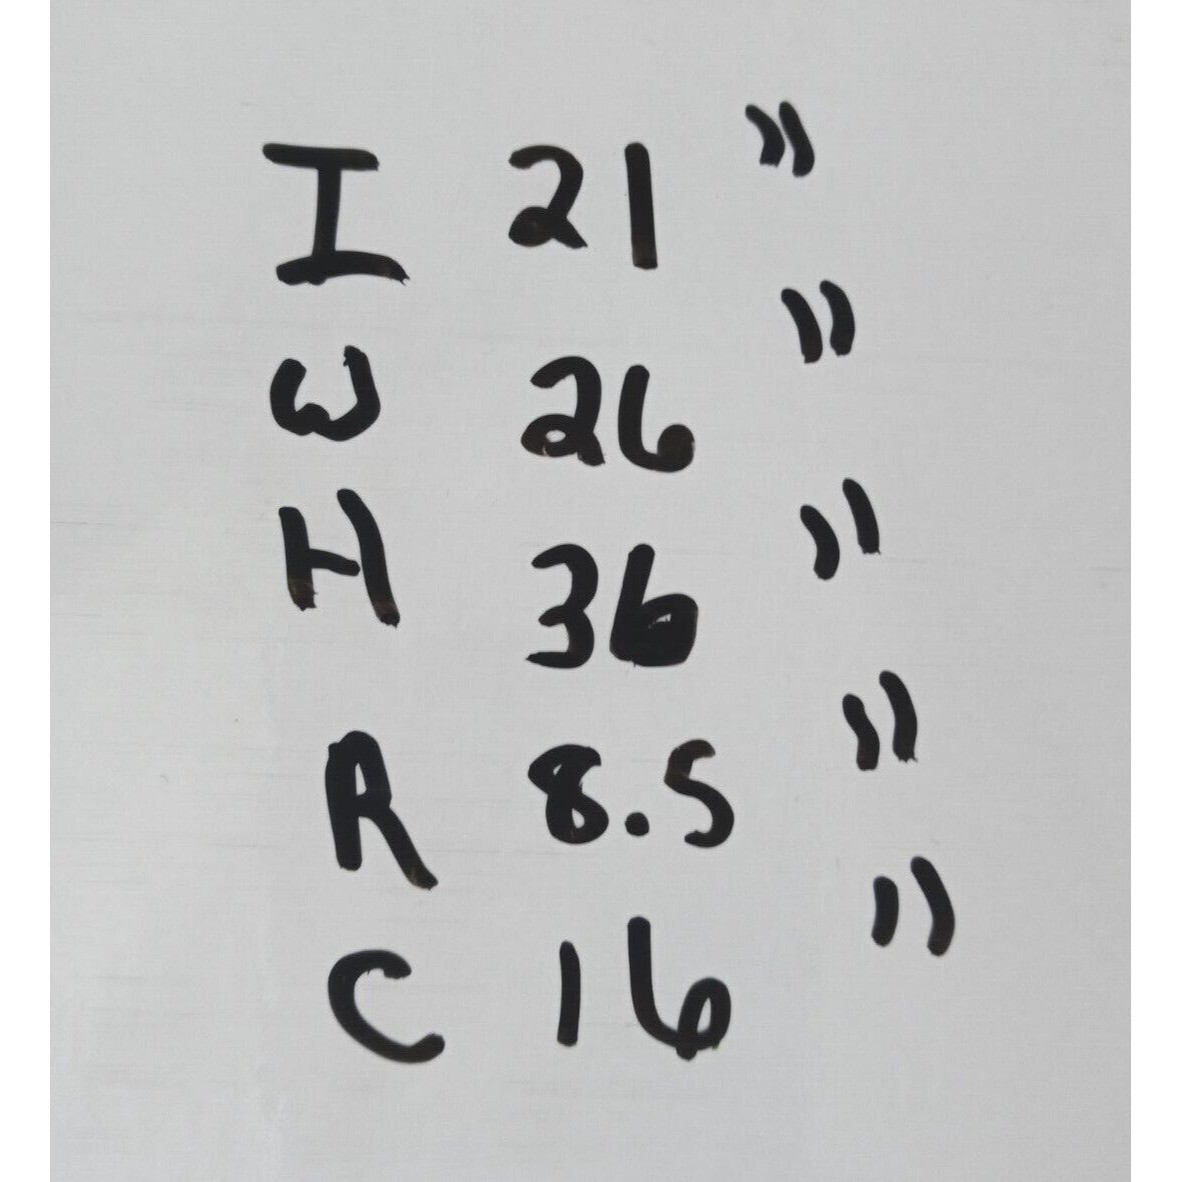 I 21 "
W 26 "
H 36 "
R 8.5 "
C 16 "